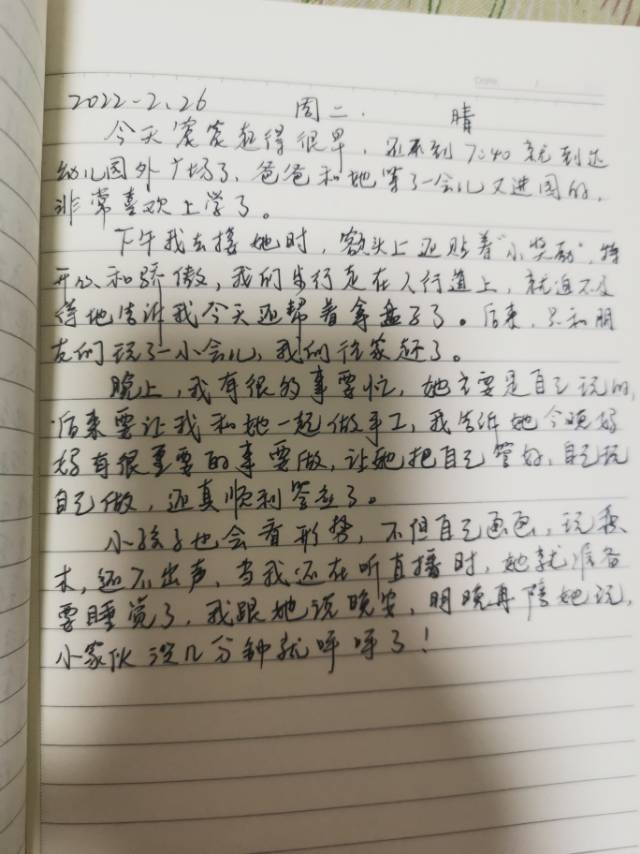 2022-2.26 周二. 晴
今天家家起得很早，还不到7:40就到达
幼儿园外广场了，爸爸和她等了一会儿又进园的，
非常喜欢上学了。
下午我去接她时，额头上还贴着"小奖励"，特
开心和骄傲，我们步行走在人行道上，就迫不及
待地告诉我今天还帮着拿盘子了。后来，只和朋
友们玩了一小会儿，我们往家赶了。
晚上，我有很的事要忙，她主要是自己玩的，
后来要让我和她一起做手工，我告诉她今晚妈
妈有很重要的事要做，让她把自己管好，自己玩
自己做，还真顺利答应了。
小孩子也会看形势，不但自己画画，玩积
木，还不出声，当我还在听直播时，她就准备
要睡觉了，我跟她说晚安，明晚再陪她玩，
小家伙没几分钟就呼呼了！